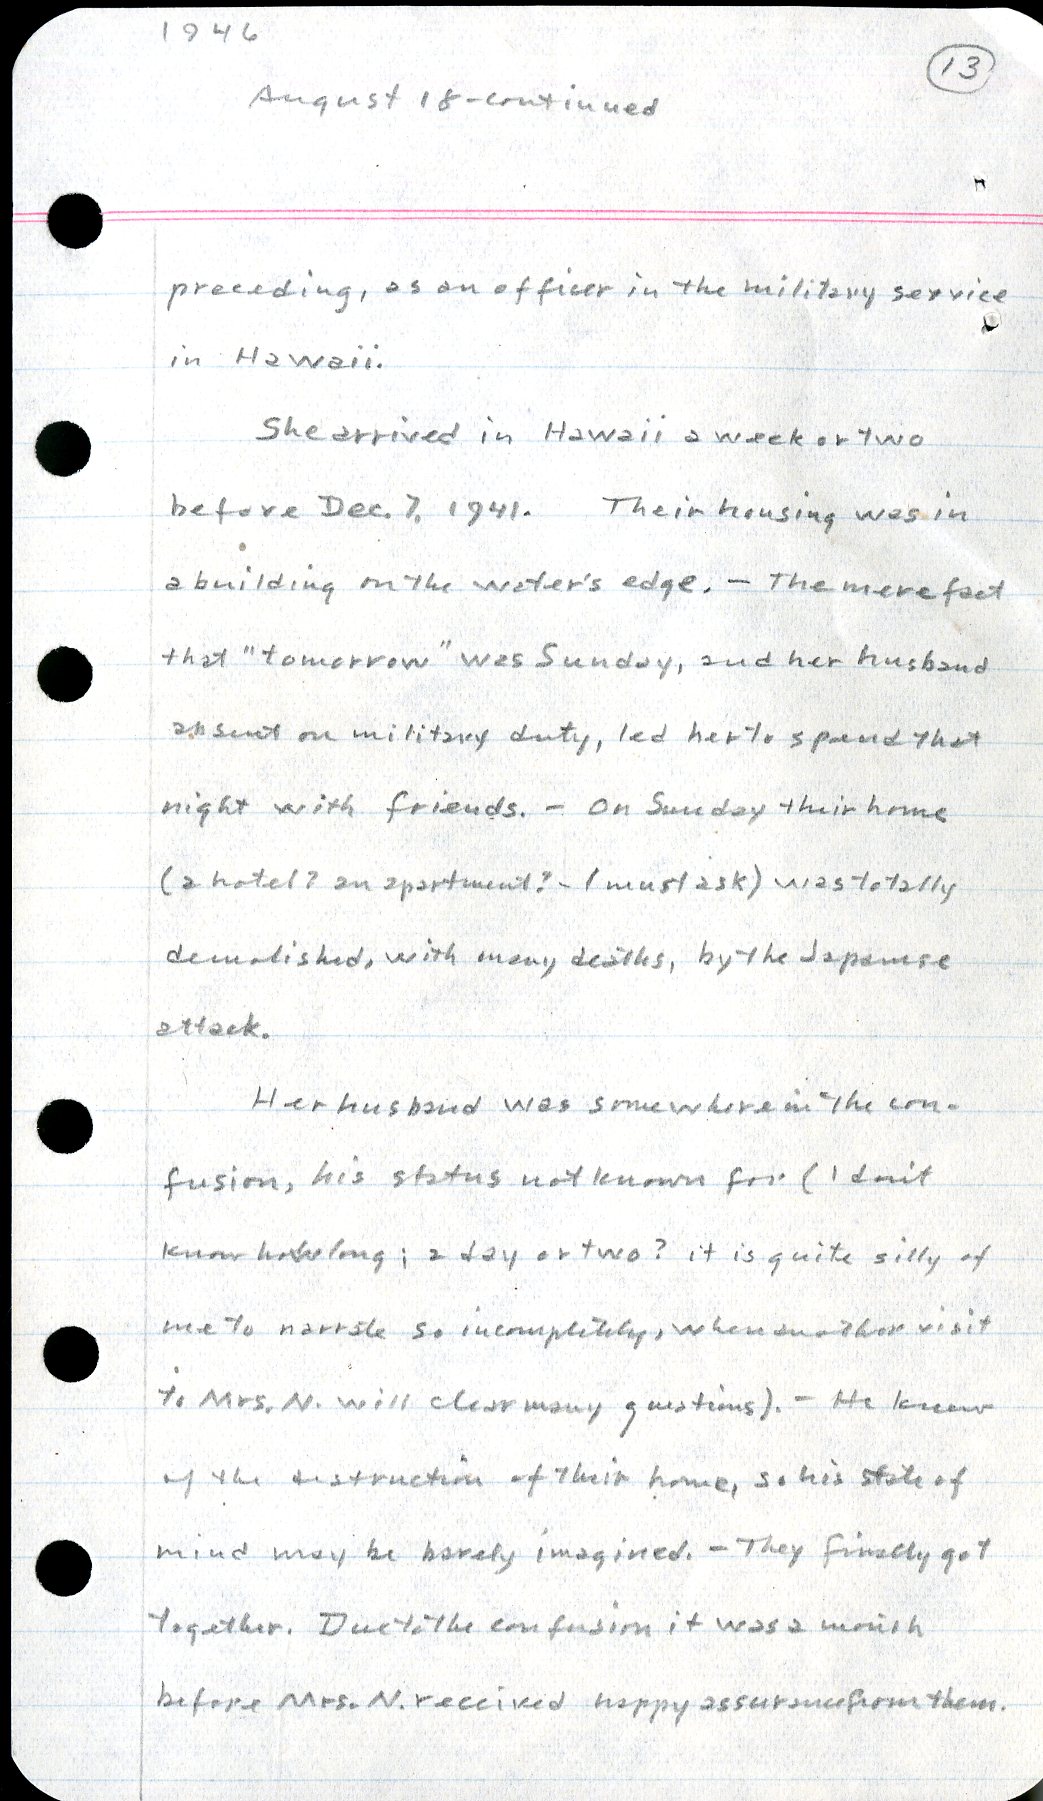 1946
13
August 18-continued
preceding, as an officer in the military service
in Hawaii.
She arrived in Hawaii a week or two
before Dec. 7, 1941. Their housing was in
a building on the water's edge. - The mere fact
that "tomorrow" was Sunday, and her husband
absent on military duty, led her to spend that
night with friends. - On Sunday their home
(a hotel? an apartment? - I must ask) was totally
demolished, with many deaths, by the Japanese
attack.
Her husband was somewhere in the con-
fusion, his status not known for (I don't
know how long; a day or two? it is quite silly of
me to narrate so incompletely, when another visit
to Mrs. N. will clear many questions). - He knew
of the destruction of their home, so his state of
mind may be barely imagined. - They finally got
together. Due to the confusion it was a month
before Mrs. N. received happy assurance from them.